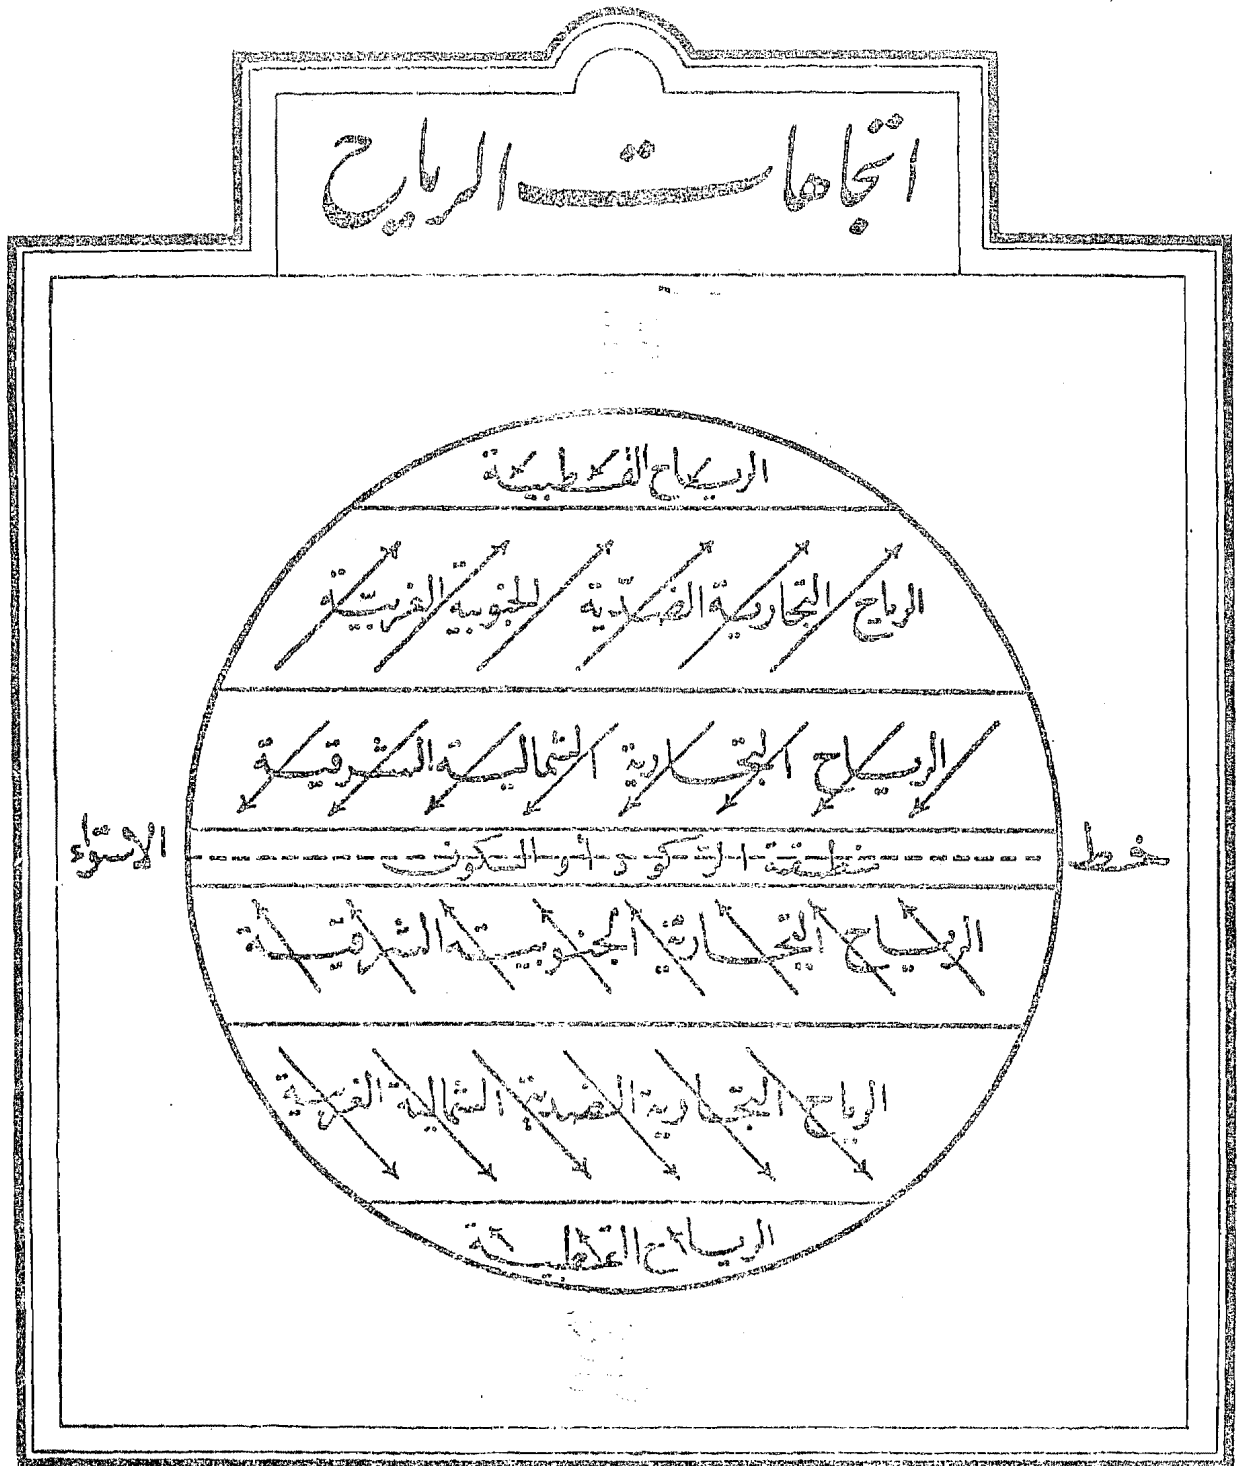 اتجاهات الرياح
الرياح القطبية
الرياح التجارية الضدّية الجنوبية الغربيّة
الرياح التجارية الشمالية الشرقية
خط الاستواء
منطقة الركود أو السكون
الرياح التجارية الجنوبية الشرقية
الرياح التجارية الضدية الشمالية الغربية
الرياح القطبية